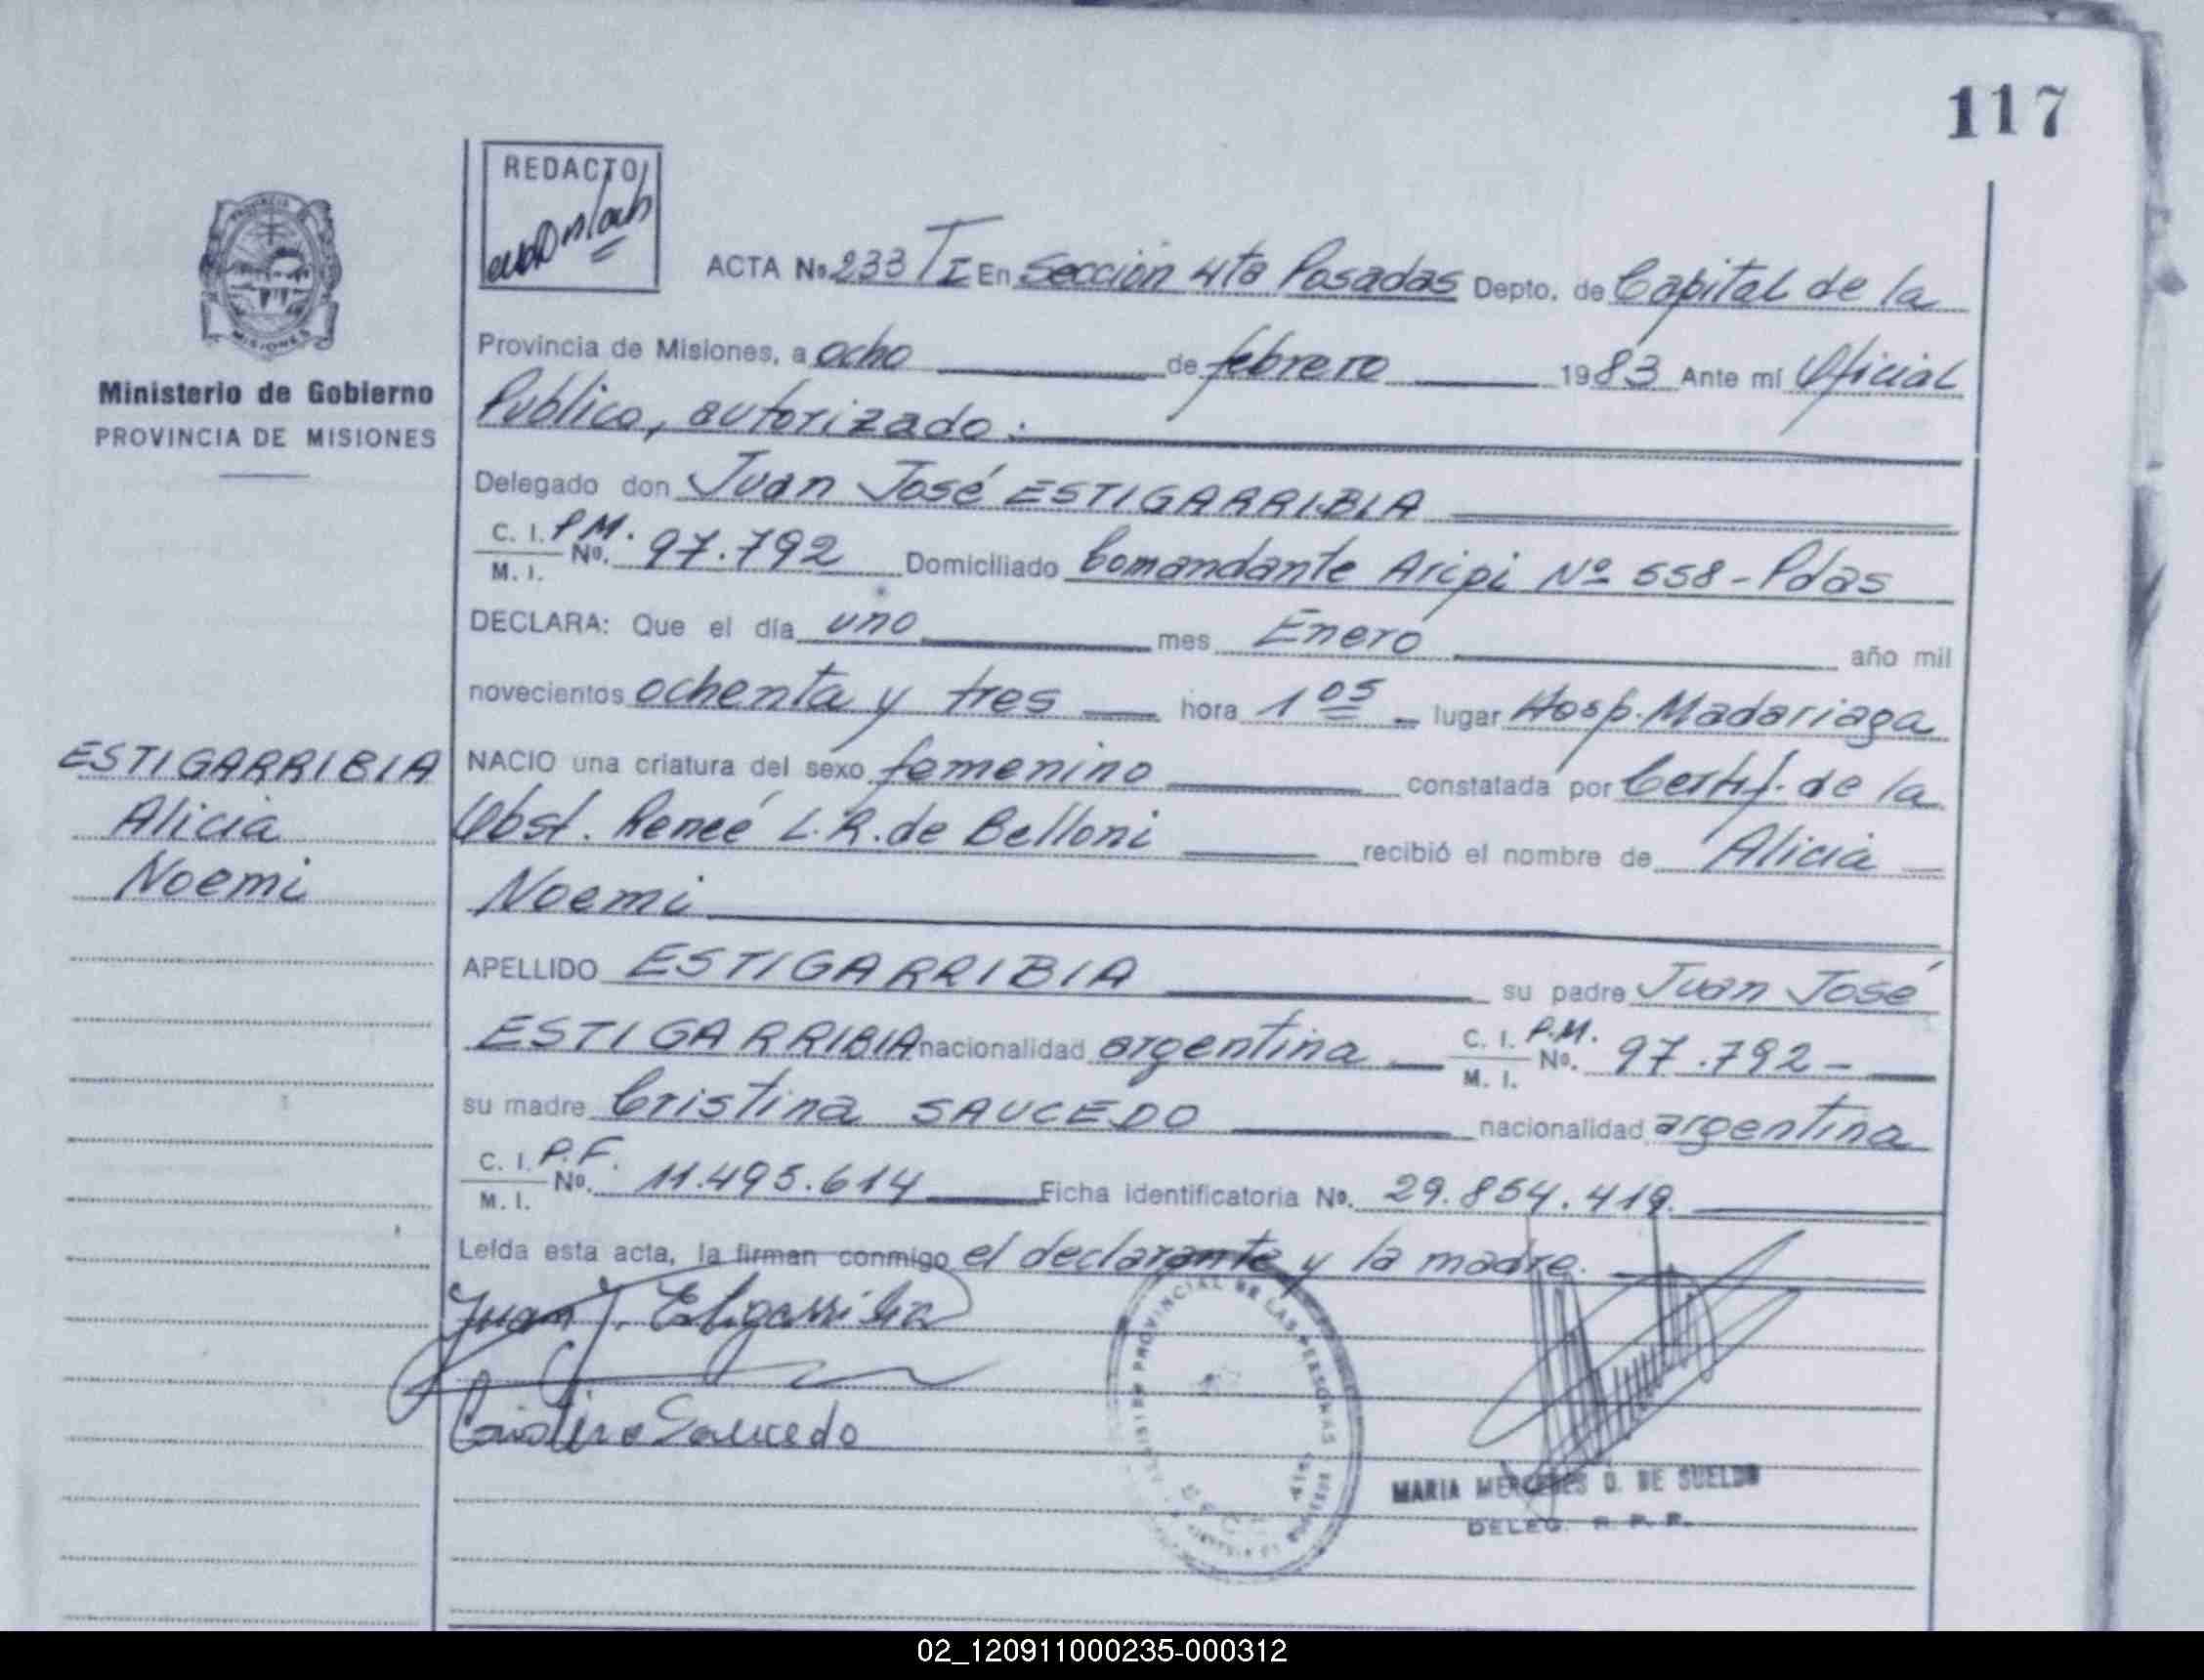 117
REDACTO
ACTA No. 233 TI En Sección 4ta Posadas Depto. de Capital de la
Provincia de Misiones, a ocho de febrero 1983 Ante mí Oficial
Ministerio de Gobierno
PROVINCIA DE MISIONES
Publico, autorizado:
Delegado don Juan José ESTIGARRIBIA
C. I. P.M.
M. I. No. 97.792 Domiciliado Comandante Aripi Nº 558 - Pdas
DECLARA: Que el día uno mes Enero año mil
novecientos ochenta y tres hora 1 05 lugar Hosp. Madariaga
ESTIGARRIBIA
Alicia
Noemi
NACIO una criatura del sexo femenino constatada por Certif. de la
Obst. Reneé L.R. de Belloni recibió el nombre de Alicia
Noemi
APELLIDO ESTIGARRIBIA su padre Juan José
ESTIGARRIBIA nacionalidad argentina C. I. P.M. M. I. No. 97.792 -
su madre Cristina SAUCEDO nacionalidad argentina
C. I. P.F. M. I. No. 11.495.614 Ficha identificatoria No. 29.854.419.
Leída esta acta, la firman conmigo el declarante y la madre.
Juan J. Estigarribia
Cristina Saucedo
PROVINCIAL DE LAS PERSONAS
MISIONES
MARIA MERCEDES D. DE SUELDO
DELEG. R. P. P.
02_120911000235-000312